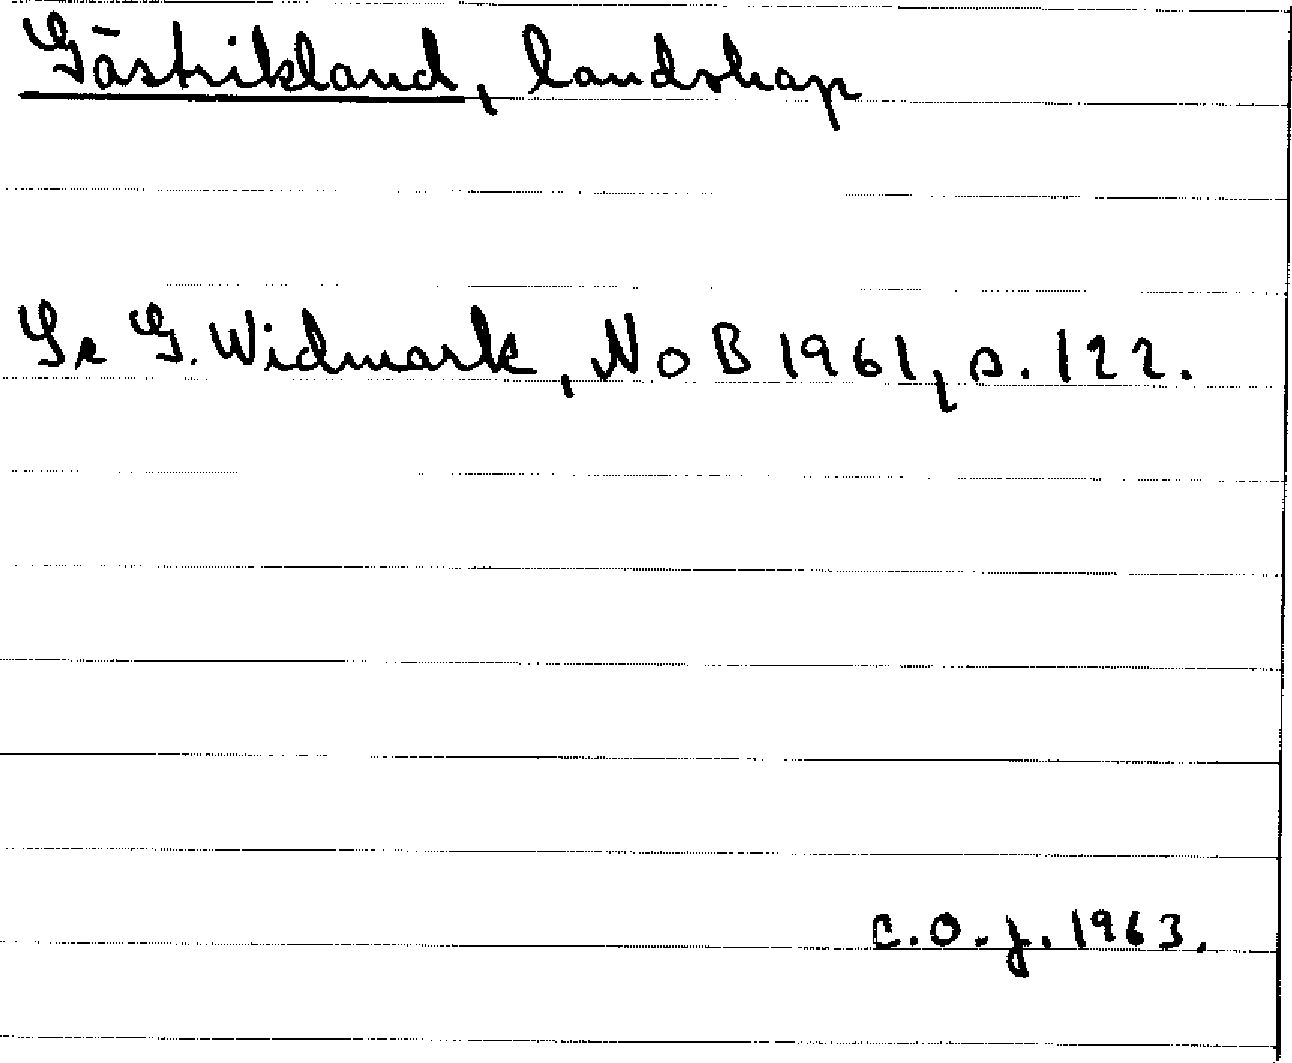 Gästrikland, landskap
Se G. Widmark, NoB 1961, s. 122.
C.O.J. 1963.